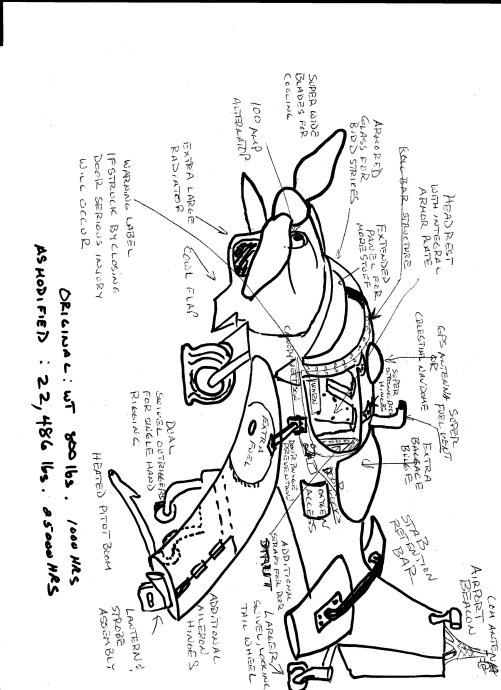 SUPER WIDE
BLADES FOR
COOLING
100 AMP
ALTERNATOR
EXTRA LARGE
RADIATOR
COWL FLAP
WARNING LABEL
IF STRUCK BY CLOSING
DOOR SERIOUS INJURY
WILL OCCUR
ARMORED
GLASS FOR
BIRD STRIKES
ROLL BAR STRUCTURE
HEADREST
WITH INTEGRAL
ARMOR PLATE
EXTENDED
PANEL FOR
MORE STUFF
GPS ANTENNA
OR
CELESTIAL NAV DOME
SUPER
FUEL VENT
EXTRA
BAGGAGE
BULGE
SUPER
STRONG DOOR
HINGES
WARN
DOOR BULGE
PREVENTION
OXYGEN
ACCESS
EXTRA
FUEL
DUAL
SWIVEL OUTRIGGERS
FOR SINGLE HAND
RIGGING
HEATED PITOT BOOM
LANTERN &
STROBE
ASSEMBLY
ADDITIONAL
AILERON
HINGES
ADDITIONAL
STRAPS FOR DOOR
STRUT
LARGER
SWIVEL, LOCKING
TAIL WHEEL
STAB
RETENTION
BAR
AIRPORT
BEACON
COM ANTENNA
ORIGINAL: WT 800 lbs. 1000 HRS
AS MODIFIED: 22,486 lbs. 25000 HRS